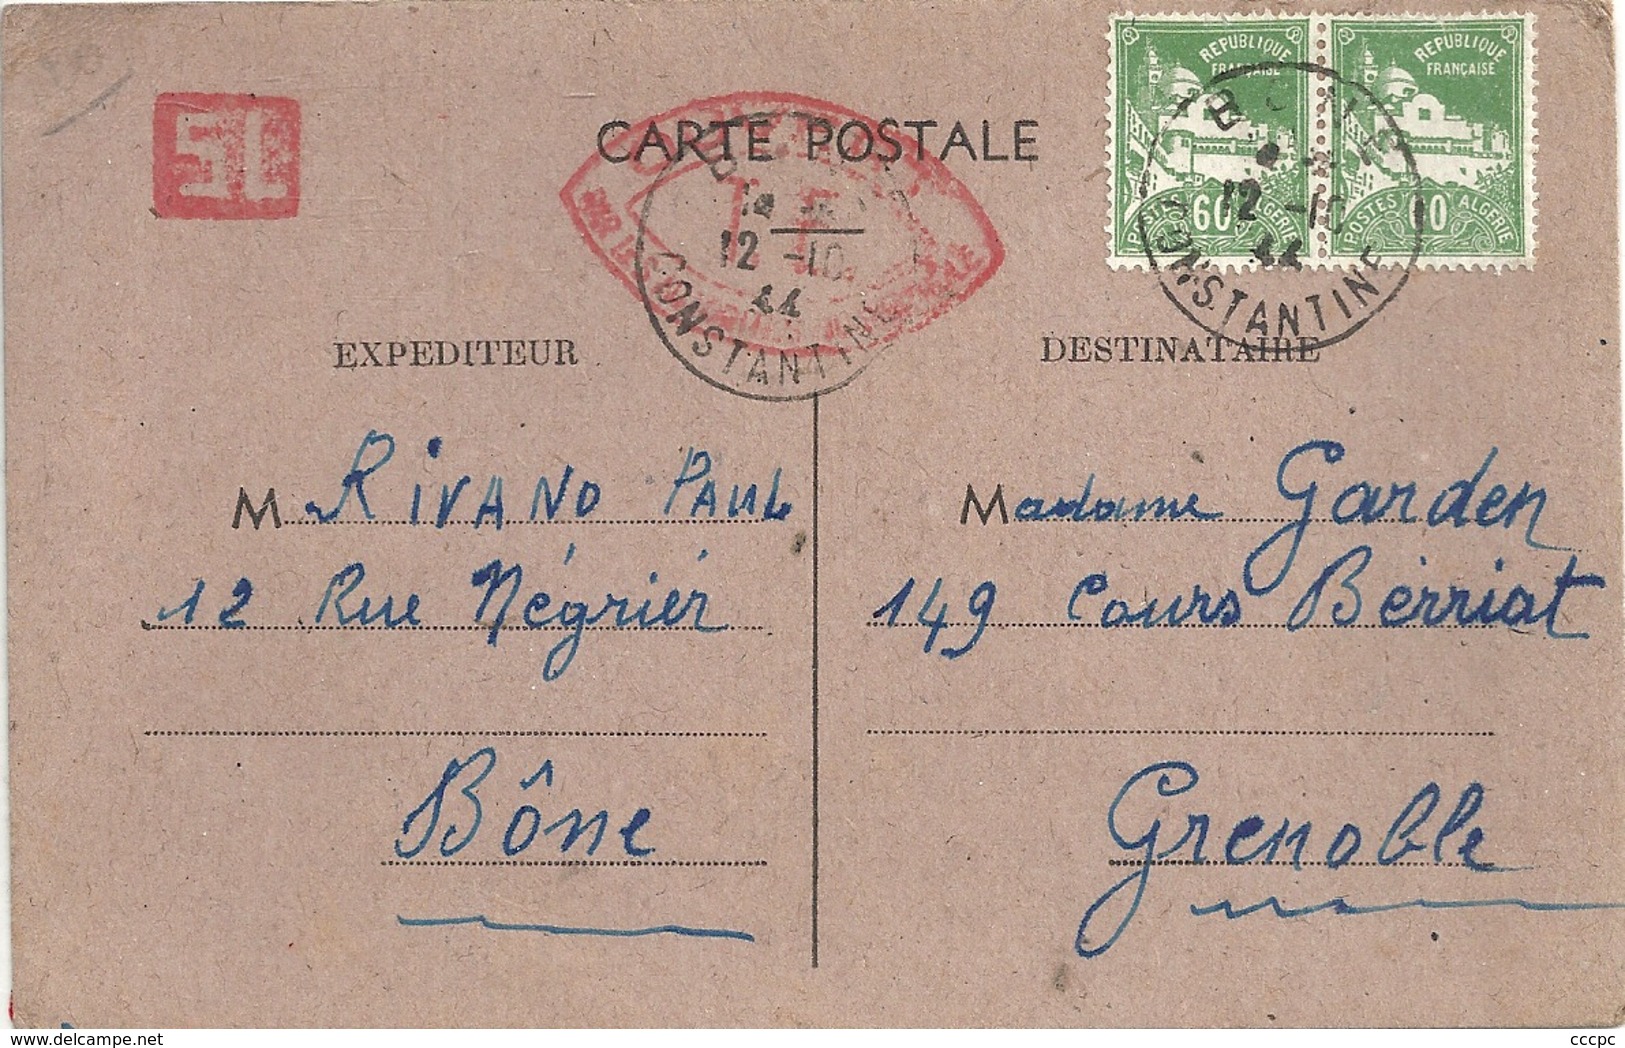 CARTE POSTALE
REPUBLIQUE FRANÇAISE
POSTES 60 ALGERIE
REPUBLIQUE FRANÇAISE
POSTES 60 ALGERIE
BONE
12 -10
44
CONSTANTINE
12 -10
44
CONSTANTINE
51
EXPEDITEUR
M RIVANO PAUL
12 Rue Négrier
Bône
DESTINATAIRE
Madame Garden
149 Cours Bérriat
Grenoble
cccpc